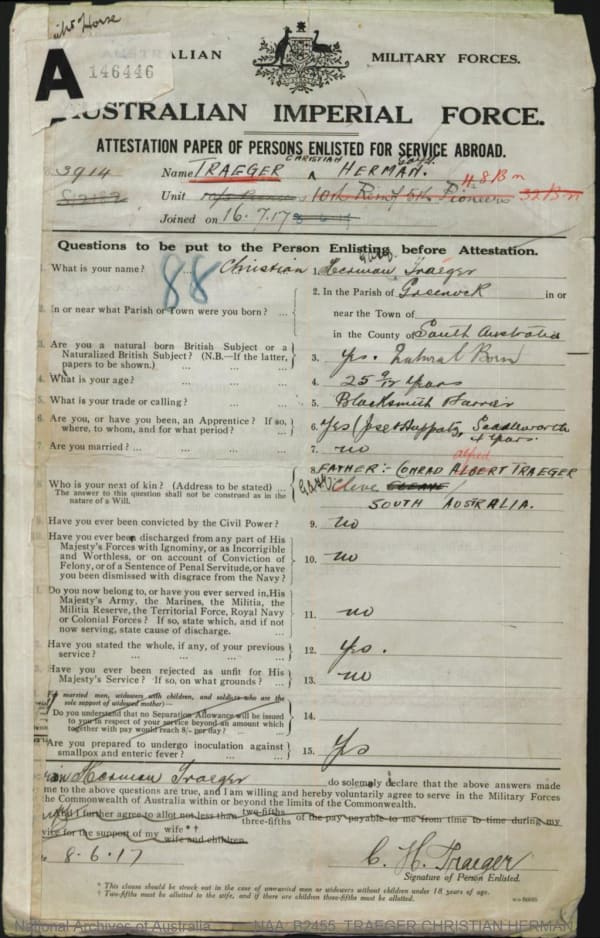 Light Horse
A
146446
AUSTRALIAN MILITARY FORCES.
AUSTRALIAN IMPERIAL FORCE.
ATTESTATION PAPER OF PERSONS ENLISTED FOR SERVICE ABROAD.
3914 Name TRAEGER CHRISTIAN HERMAN.
Unit 10th Reinf 5th Pioneers H.S Bn 32 Bn
Joined on 16.7.17 8-6-17
Questions to be put to the Person Enlisting before Attestation.
88
1. What is your name? ... Christian 1. Herman Traeger
2. In or near what Parish or Town were you born? ... 2. In the Parish of Greenock in or
near the Town of
in the County of South Australia
3. Are you a natural born British Subject or a
Naturalized British Subject? (N.B.—If the latter,
papers to be shown.) ... ... ... 3. Yes. Natural Born
4. What is your age? ... ... ... 4. 25 9/12 Years
5. What is your trade or calling? ... ... 5. Blacksmith Farrier
6. Are you, or have you been, an Apprentice? If so,
where, to whom, and for what period? ... 6. Yes (Jose & Huppatz, Saddleworth
4 Years.
7. Are you married? ... ... ... 7. no
alfred
8. Who is your next of kin? (Address to be stated) ... 8. FATHER:- CONRAD ALBERT TRAEGER
The answer to this question shall not be construed as in the
nature of a Will. Cleve CLEAVE
SOUTH AUSTRALIA.
9. Have you ever been convicted by the Civil Power? 9. no
10. Have you ever been discharged from any part of His
Majesty's Forces with Ignominy, or as Incorrigible
and Worthless, or on account of Conviction of
Felony, or of a Sentence of Penal Servitude, or have
you been dismissed with disgrace from the Navy? 10. no
Do you now belong to, or have you ever served in, His
Majesty's Army, the Marines, the Militia, the
Militia Reserve, the Territorial Force, Royal Navy
or Colonial Forces? If so, state which, and if not
now serving, state cause of discharge. ... 11. no
Have you stated the whole, if any, of your previous
service? ... ... ... 12. yes.
Have you ever been rejected as unfit for His
Majesty's Service? If so, on what grounds? ... 13. no
married men, widowers with children, and soldiers who are the
sole support of widowed mother)—
Do you understand that no Separation Allowance will be issued
to you in respect of your service beyond an amount which
together with pay would reach 8/- per day? ... 14.
Are you prepared to undergo inoculation against
smallpox and enteric fever? ... ... 15. Yes
Herman Traeger do solemnly declare that the above answers made
me to the above questions are true, and I am willing and hereby voluntarily agree to serve in the Military Forces
the Commonwealth of Australia within or beyond the limits of the Commonwealth.
And I further agree to allot not less than two-fifths
three-fifths of the pay payable to me from time to time during my
service for the support of my wife*†
wife and children
8.6.17
C. H. Traeger
Signature of Person Enlisted.
* This clause should be struck out in the case of unmarried men or widowers without children under 18 years of age.
† Two-fifths must be allotted to the wife, and if there are children three-fifths must be allotted.
National Archives of Australia NAA: B2455, TRAEGER CHRISTIAN HERMAN